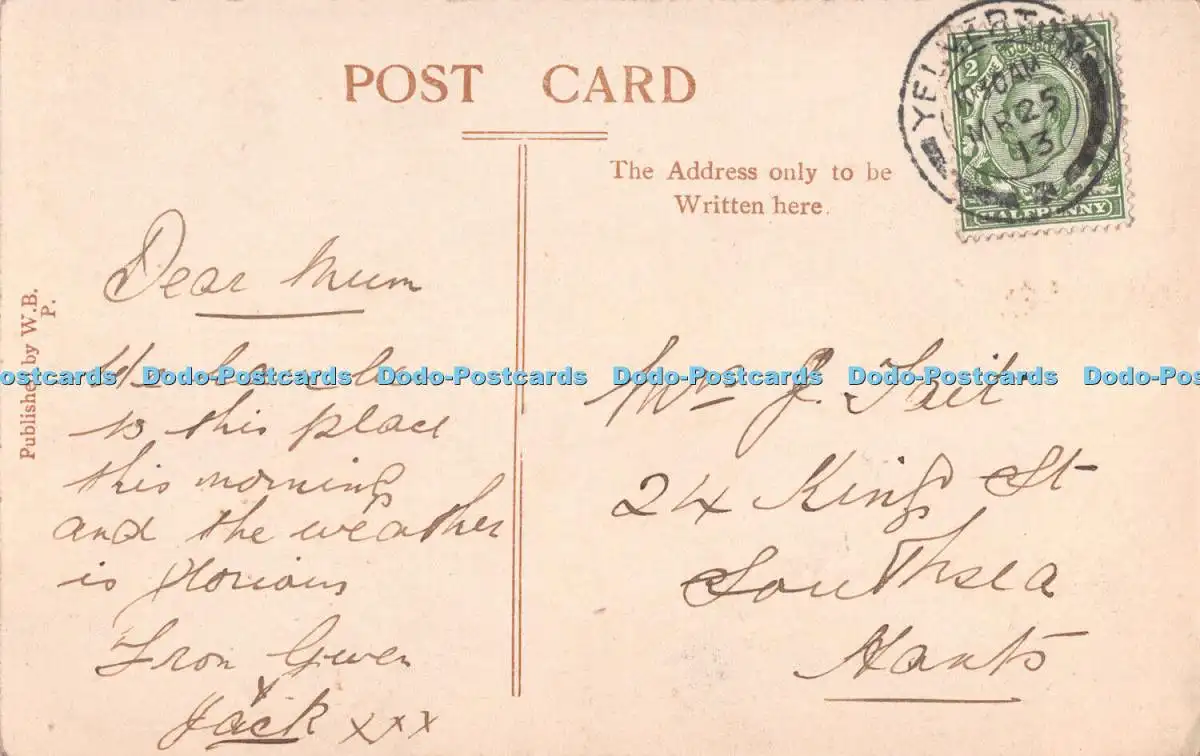 POST CARD
The Address only to be
Written here.
YELVERTON
10 30AM
MR 25
13
HALFPENNY
Published by W.B.
P.
Dear Mum
We have
to this place
this morning
and the weather
is glorious
From Gwen
x
Jack xxx
J. Tait
24 King St
Southsea
Hants
ostcards Dodo-Postcards Dodo-Postcards Dodo-Postcards Dodo-Postcards Dodo-Postc